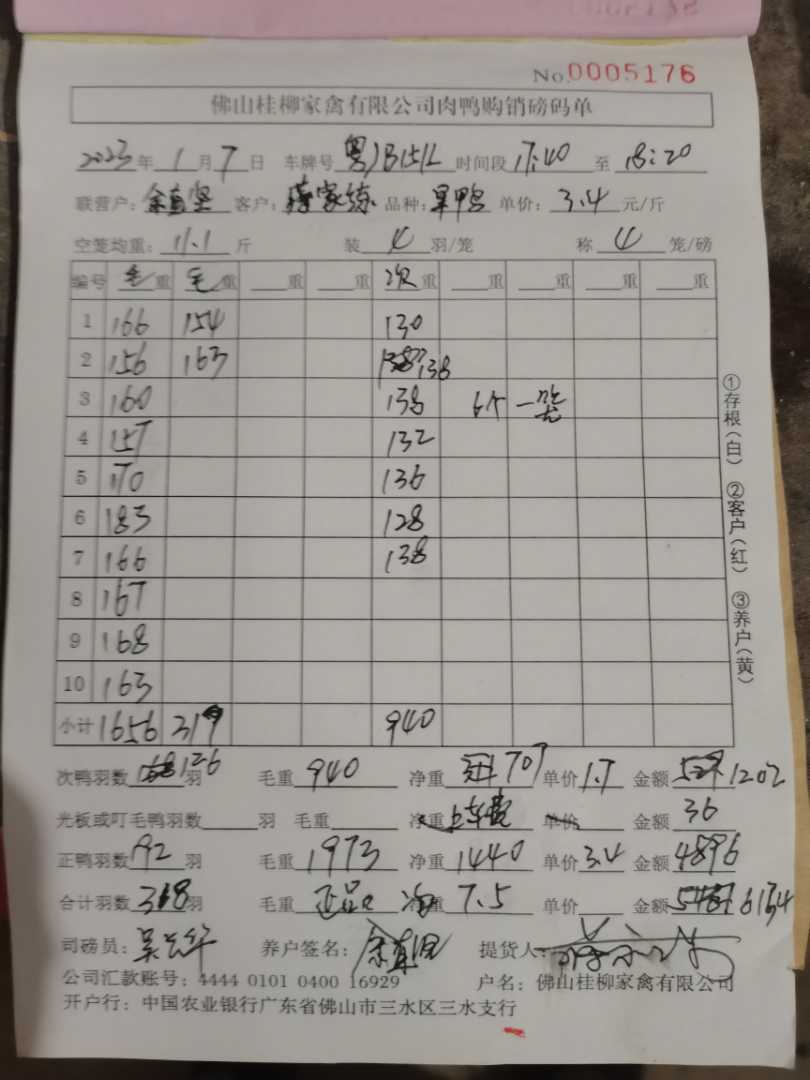 No.0005176
佛山桂柳家禽有限公司肉鸭购销磅码单
2023年1月7日 车牌号 粤JB151L 时间段 17:40 至 18:20
联营户: 余 客户: 家练 品种: 旱鸭 单价: 3.4 元/斤
空笼均重: 11.1 斤 装 4 羽/笼 称 4 笼/磅
编号 毛重 毛重 重 重 次重 重 重 重 重
1 166 154 130
2 156 163 138
3 160 138 6斤 一笼
4 157 132
5 170 136
6 183 128
7 166 138
8 167
9 168
10 163
小计 1656 317 940
次鸭羽数 126 羽 毛重 940 净重 707 单价 1.7 金额 1202
光板或叮毛鸭羽数 羽 毛重 净重 上车费 单价 金额 36
正鸭羽数 192 羽 毛重 1973 净重 1440 单价 3.4 金额 4896
合计羽数 318 羽 毛重 正品 净重 7.5 单价 金额 6134
司磅员: 吴 养户签名: 余 提货人:
公司汇款账号: 4444 0101 0400 16929 户名: 佛山桂柳家禽有限公司
开户行: 中国农业银行广东省佛山市三水区三水支行
①存根(白) ②客户(红) ③养户(黄)